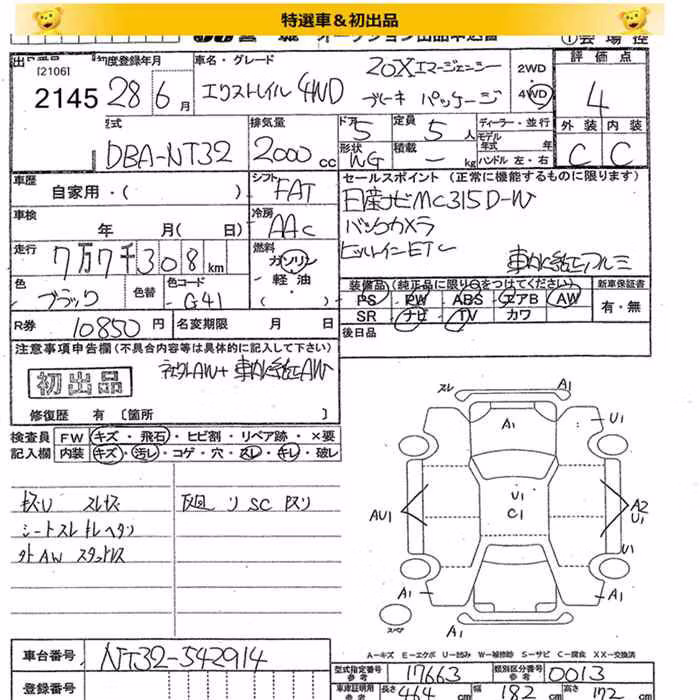 特選車＆初出品
オークション出品申込書
①会場控
[2106]
2145
初度登録年月
28 6月
車名・グレード
エクストレイル 4WD
20Xエマージェンシー
ブレーキ パッケージ
2WD
4WD
評価点
4
型式
DBA-NT32
排気量
2000cc
ドア
5
定員
5人
ディーラー・並行
モデル年式 年
ハンドル 左・右
形状
WG
積載
- kg
外装 内装
C C
車歴
自家用・( )
シフト
FAT
セールスポイント (正常に機能するものに限ります)
日産ナビMC315D-W
バックカメラ
ビルトインETC
車検
年 月( 日)
冷房
AAC
走行
7万7千308km
燃料
ガソリン・軽油・( )
色
ブラック
色替
色コード
G41
装備品(純正品に限り○をつけてください) 新車保証書
PS PW ABS エアB AW
SR ナビ TV カワ
有・無
R券 10850円
名変期限 月 日
後日品
注意事項申告欄(不具合内容等は具体的に記入して下さい)
初出品
修復歴 有 [箇所 ]
検査員記入欄
FW キズ・飛石・ヒビ割・リペア跡・×要
内装 キズ・汚レ・コゲ・穴・スレ・キレ・破レ
キズU スレキズ
シートスレ
外AW スタッドレス
スレ A1
A1
U1
U1
C1
AU1
A2
U1
U1
A1 A1
A1
スペア
A-キズ E-エクボ U-凹み W-補修跡 S-サビ C-腐食 XX-交換済
車台番号 NT32-542914
登録番号
型式指定番号 参考 17663
類別区分番号 参考 0013
車庫証明用 参考 長さ 464 cm 幅 182 cm 高さ 172